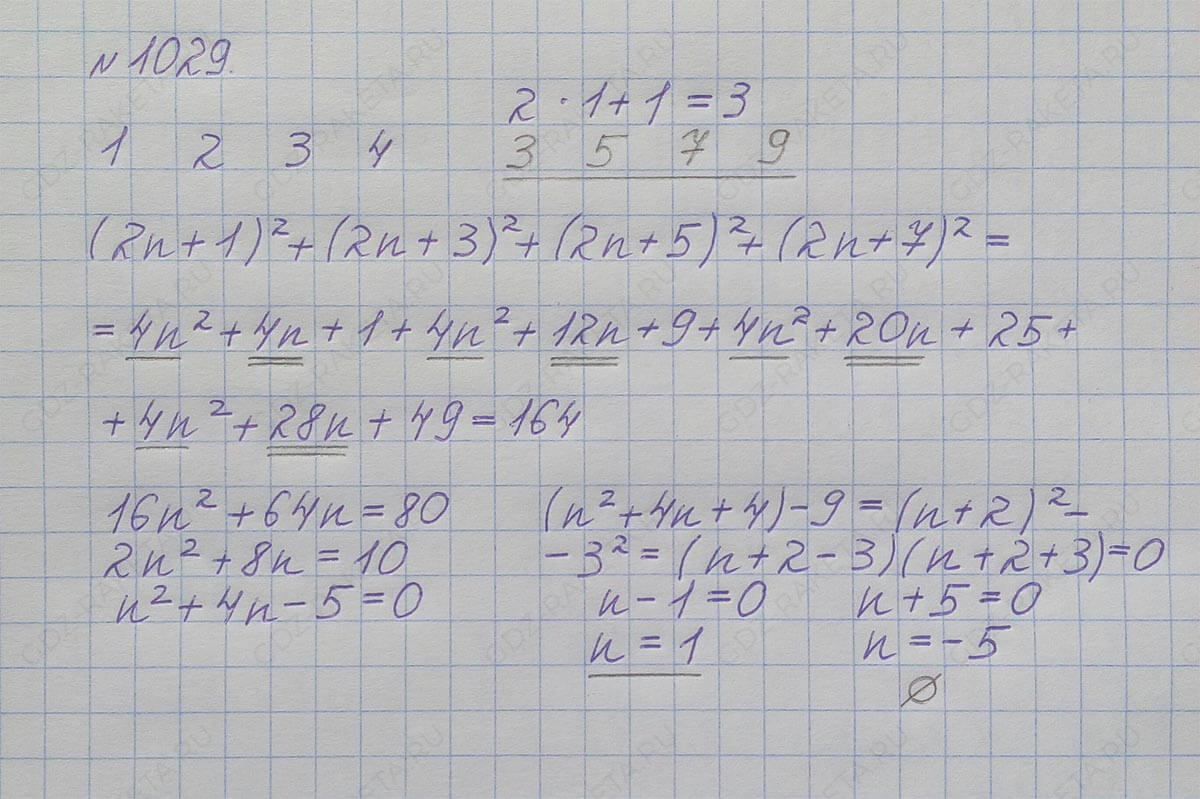 №1029.
2 · 1 + 1 = 3
1 2 3 4 3 5 7 9
(2n + 1)² + (2n + 3)² + (2n + 5)² + (2n + 7)² =
= 4n² + 4n + 1 + 4n² + 12n + 9 + 4n² + 20n + 25 +
+ 4n² + 28n + 49 = 164
16n² + 64n = 80
2n² + 8n = 10
n² + 4n - 5 = 0
(n² + 4n + 4) - 9 = (n + 2)² -
- 3² = (n + 2 - 3)(n + 2 + 3) = 0
n - 1 = 0 n + 5 = 0
n = 1 n = -5
∅
GDZ-RAKETA.RU